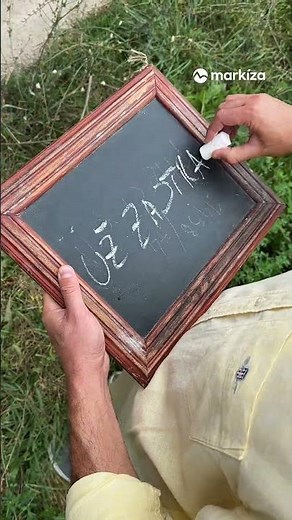 markíza
UŽ ZAJTRA